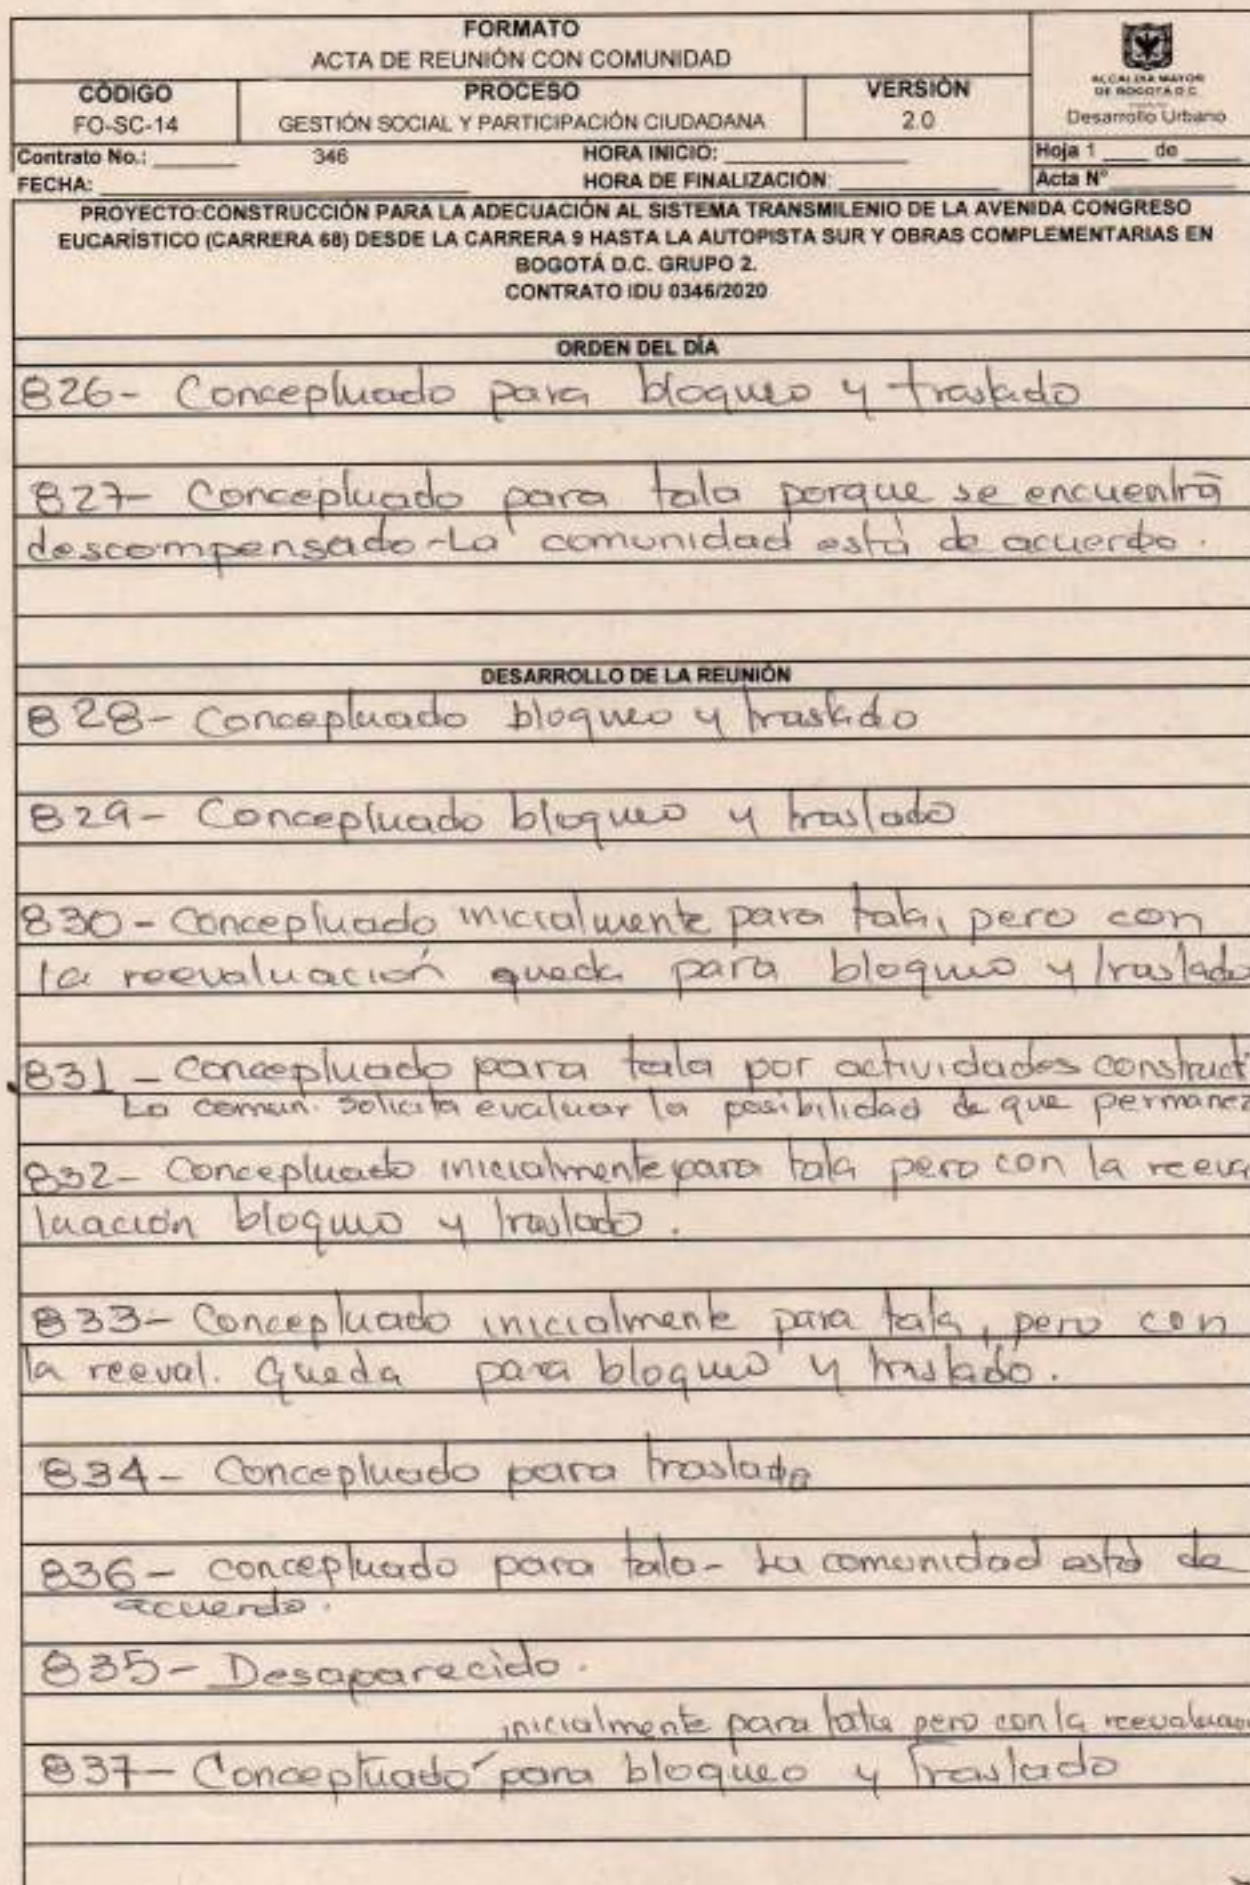 FORMATO
ACTA DE REUNIÓN CON COMUNIDAD
CÓDIGO
FO-SC-14
PROCESO
GESTIÓN SOCIAL Y PARTICIPACIÓN CIUDADANA
VERSIÓN
2.0
ALCALDÍA MAYOR
DE BOGOTÁ D.C.
Desarrollo Urbano
Contrato No.: 346 HORA INICIO:
Hoja 1 de
FECHA: HORA DE FINALIZACIÓN:
Acta N°
PROYECTO:CONSTRUCCIÓN PARA LA ADECUACIÓN AL SISTEMA TRANSMILENIO DE LA AVENIDA CONGRESO
EUCARÍSTICO (CARRERA 68) DESDE LA CARRERA 9 HASTA LA AUTOPISTA SUR Y OBRAS COMPLEMENTARIAS EN
BOGOTÁ D.C. GRUPO 2.
CONTRATO IDU 0346/2020
ORDEN DEL DÍA
826- Conceptuado para bloqueo y traslado
827- Conceptuado para tala porque se encuentra
descompensado-La comunidad está de acuerdo.
DESARROLLO DE LA REUNIÓN
828- Conceptuado bloqueo y traslado
829- Conceptuado bloqueo y traslado
830- Conceptuado inicialmente para tala, pero con
la reevaluación queda para bloqueo y traslado
831- Conceptuado para tala por actividades construct
La comun. solicita evaluar la posibilidad de que permanez
832- Conceptuado inicialmente para tala pero con la reeva
luación bloqueo y traslado.
833- Conceptuado inicialmente para tala, pero con
la reeval. Queda para bloqueo y traslado.
834- Conceptuado para traslado
836- conceptuado para tala- La comunidad está de
acuerdo.
835- Desaparecido.
inicialmente para tala pero con la reevaluacion
837- Conceptuado para bloqueo y Traslado